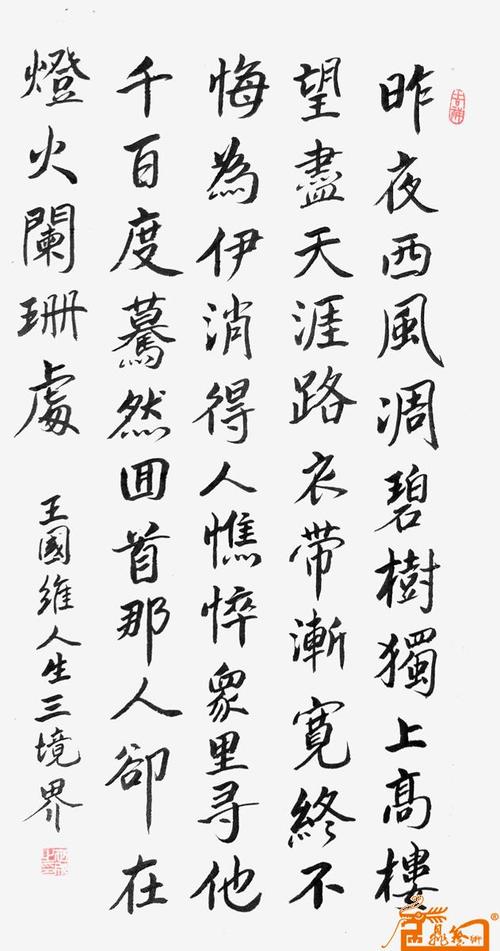 昨夜西風凋碧樹獨上高樓
望盡天涯路衣帶漸寬終不
悔為伊消得人憔悴眾里尋他
千百度驀然回首那人卻在
燈火闌珊處
王國維人生三境界